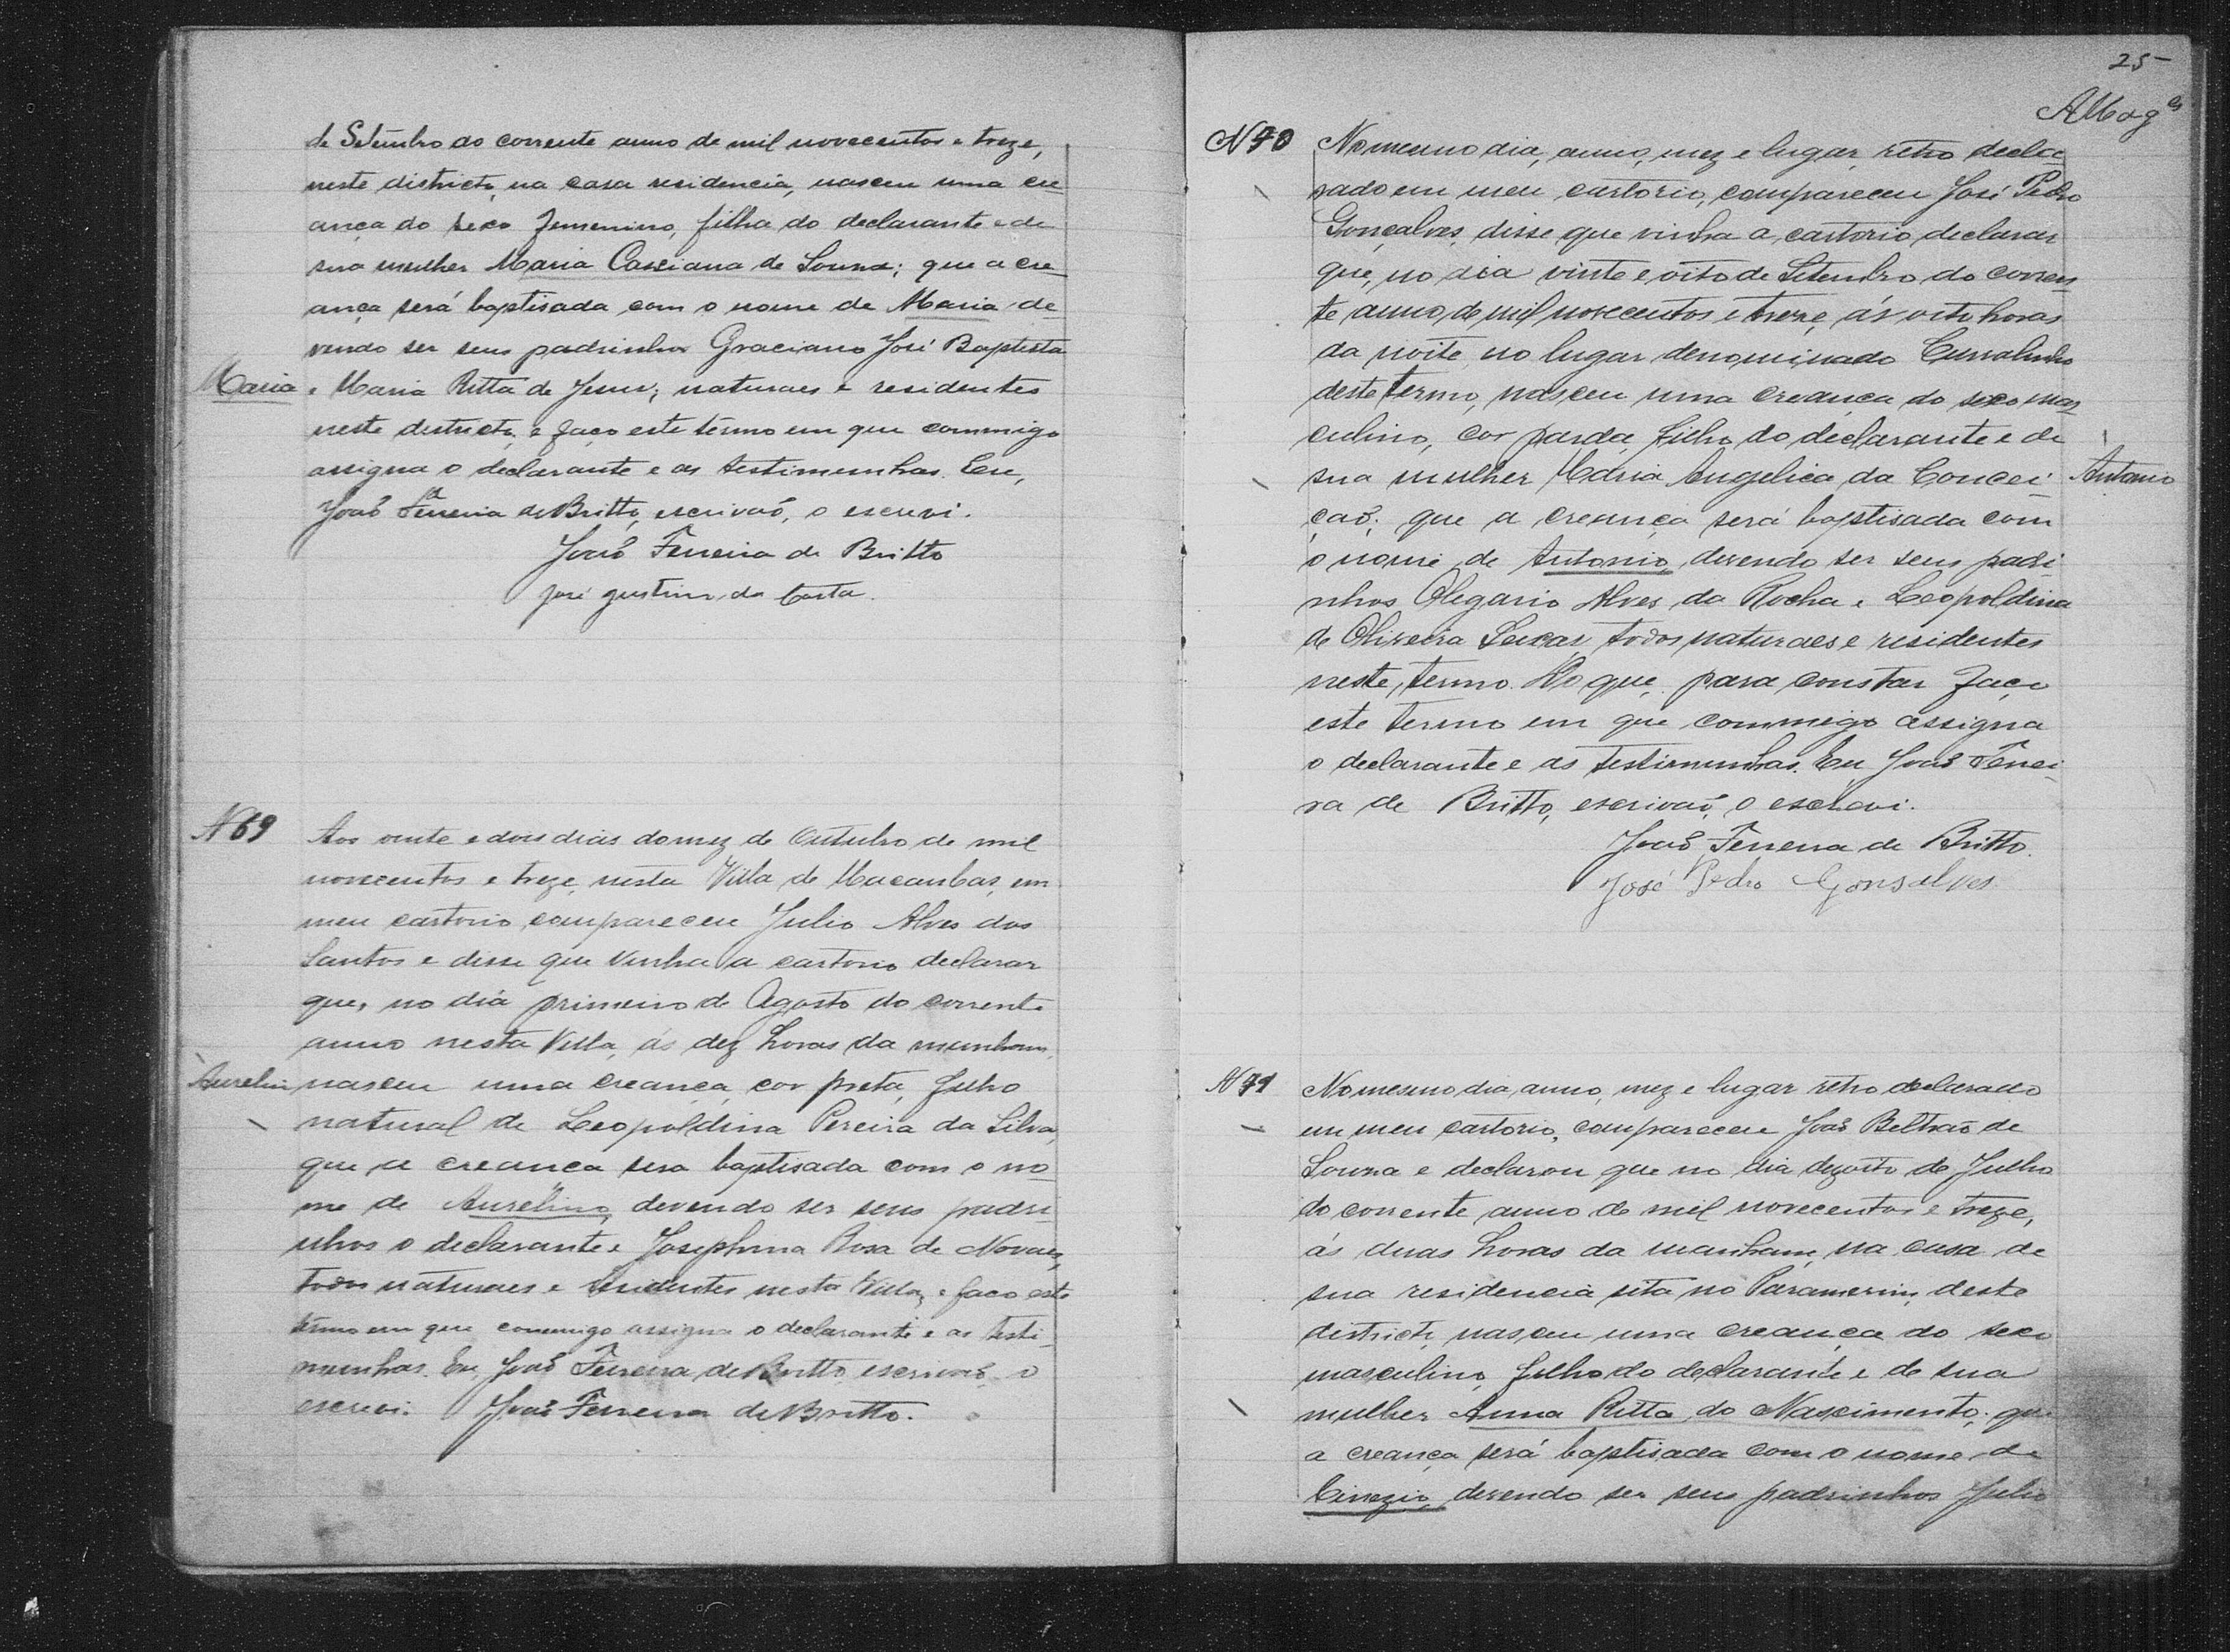 de Setembro do corrente anno de mil novecentos e treze,
neste districto, na casa residencia, nasceu uma cre
ança do sexo femenino, filha do declarante e de
sua mulher Maria Cassiana de Souza; que a cre
ança será baptisada com o nome de Maria de
vendo ser seus padrinhos Graciano José Baptista
Maria
e Maria Ritta de Jesus; naturaes e residentes
neste districto, e faço este termo em que commigo
assigna o declarante e as testimunhas. Eu,
João Ferreira de Britto, escrivaõ, o escrevi.
João Ferreira de Britto
José Justino da Costa.
N 69
Aos vinte e dois dias do mez de Outubro de mil
novecentos e treze, nesta Villa de Macaubas, em
meu cartorio compareceu Julio Alves dos
Santos e disse que vinha a cartorio declarar
que, no dia primeiro de Agosto do corrente
anno nesta Villa, ás dez horas da manham,
Aurelino
nasceu uma creança, cor preta, filho
natural de Leopoldina Pereira da Silva,
que a creança sera baptisada com o no
me de Aurelino, devendo ser seus padri
nhos o declarante e Josephina Rosa de Novaes,
todos naturaes e residentes nesta Villa, e faço este
termo em que commigo assigna o declarante e as testi
munhas. Eu, João Ferreira de Britto, escrivaõ, o
escrevi. João Ferreira de Britto.
25
N 70
No mesmo dia, anno, mez e lugar retro decla
rado em meu cartorio, compareceu José Pedro
Gonçalves, disse que vinha a cartorio declarar
que, no dia vinte e oito de Setembro do corren
te anno de mil novecentos e treze, ás oito horas
da noite, no lugar denominado Curralinho
deste termo, nasceu uma creança do sexo mas
culino, cor parda, filho do declarante e de
sua mulher Maria Angelica da Concei
Antonio
çaõ; que a creança será baptisada com
o nome de Antonio, devendo ser seus padri
nhos Olegario Alves da Rocha e Leopoldina
de Oliveira todos naturaes e residentes
neste termo. Do que, para constar faço
este termo em que commigo assigna
o declarante e as testimunhas. Eu João Ferrei
ra de Britto, escrivaõ, o escrevi.
João Ferreira de Britto.
José Pedro Gonsalves
N 71
No mesmo dia, anno, mez e lugar retro declarado
em meu cartorio, compareceu João Beltraõ de
Souza e declarou que no dia dezoito de Julho
do corrente anno de mil novecentos e treze,
ás duas horas da manham, na casa de
sua residencia sita no Paramerim, deste
districto, nasceu uma creança do sexo
masculino, filho do declarante e de sua
mulher Anna Ritta do Nascimento; que
a creança será baptisada com o nome de
devendo ser seus padrinhos Julio